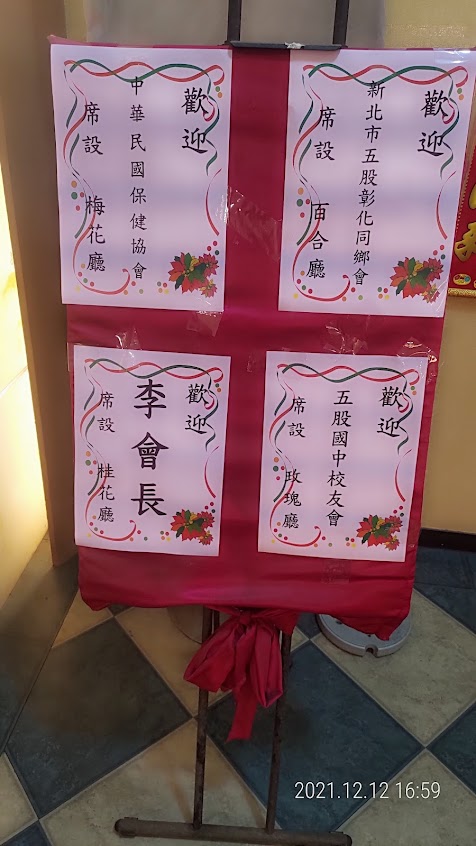 歡迎
新北市五股彰化同鄉會
席設 百合廳
歡迎
中華民國保健協會
席設 梅花廳
歡迎
五股國中校友會
席設 玫瑰廳
歡迎
李會長
席設 桂花廳
2021.12.12 16:59